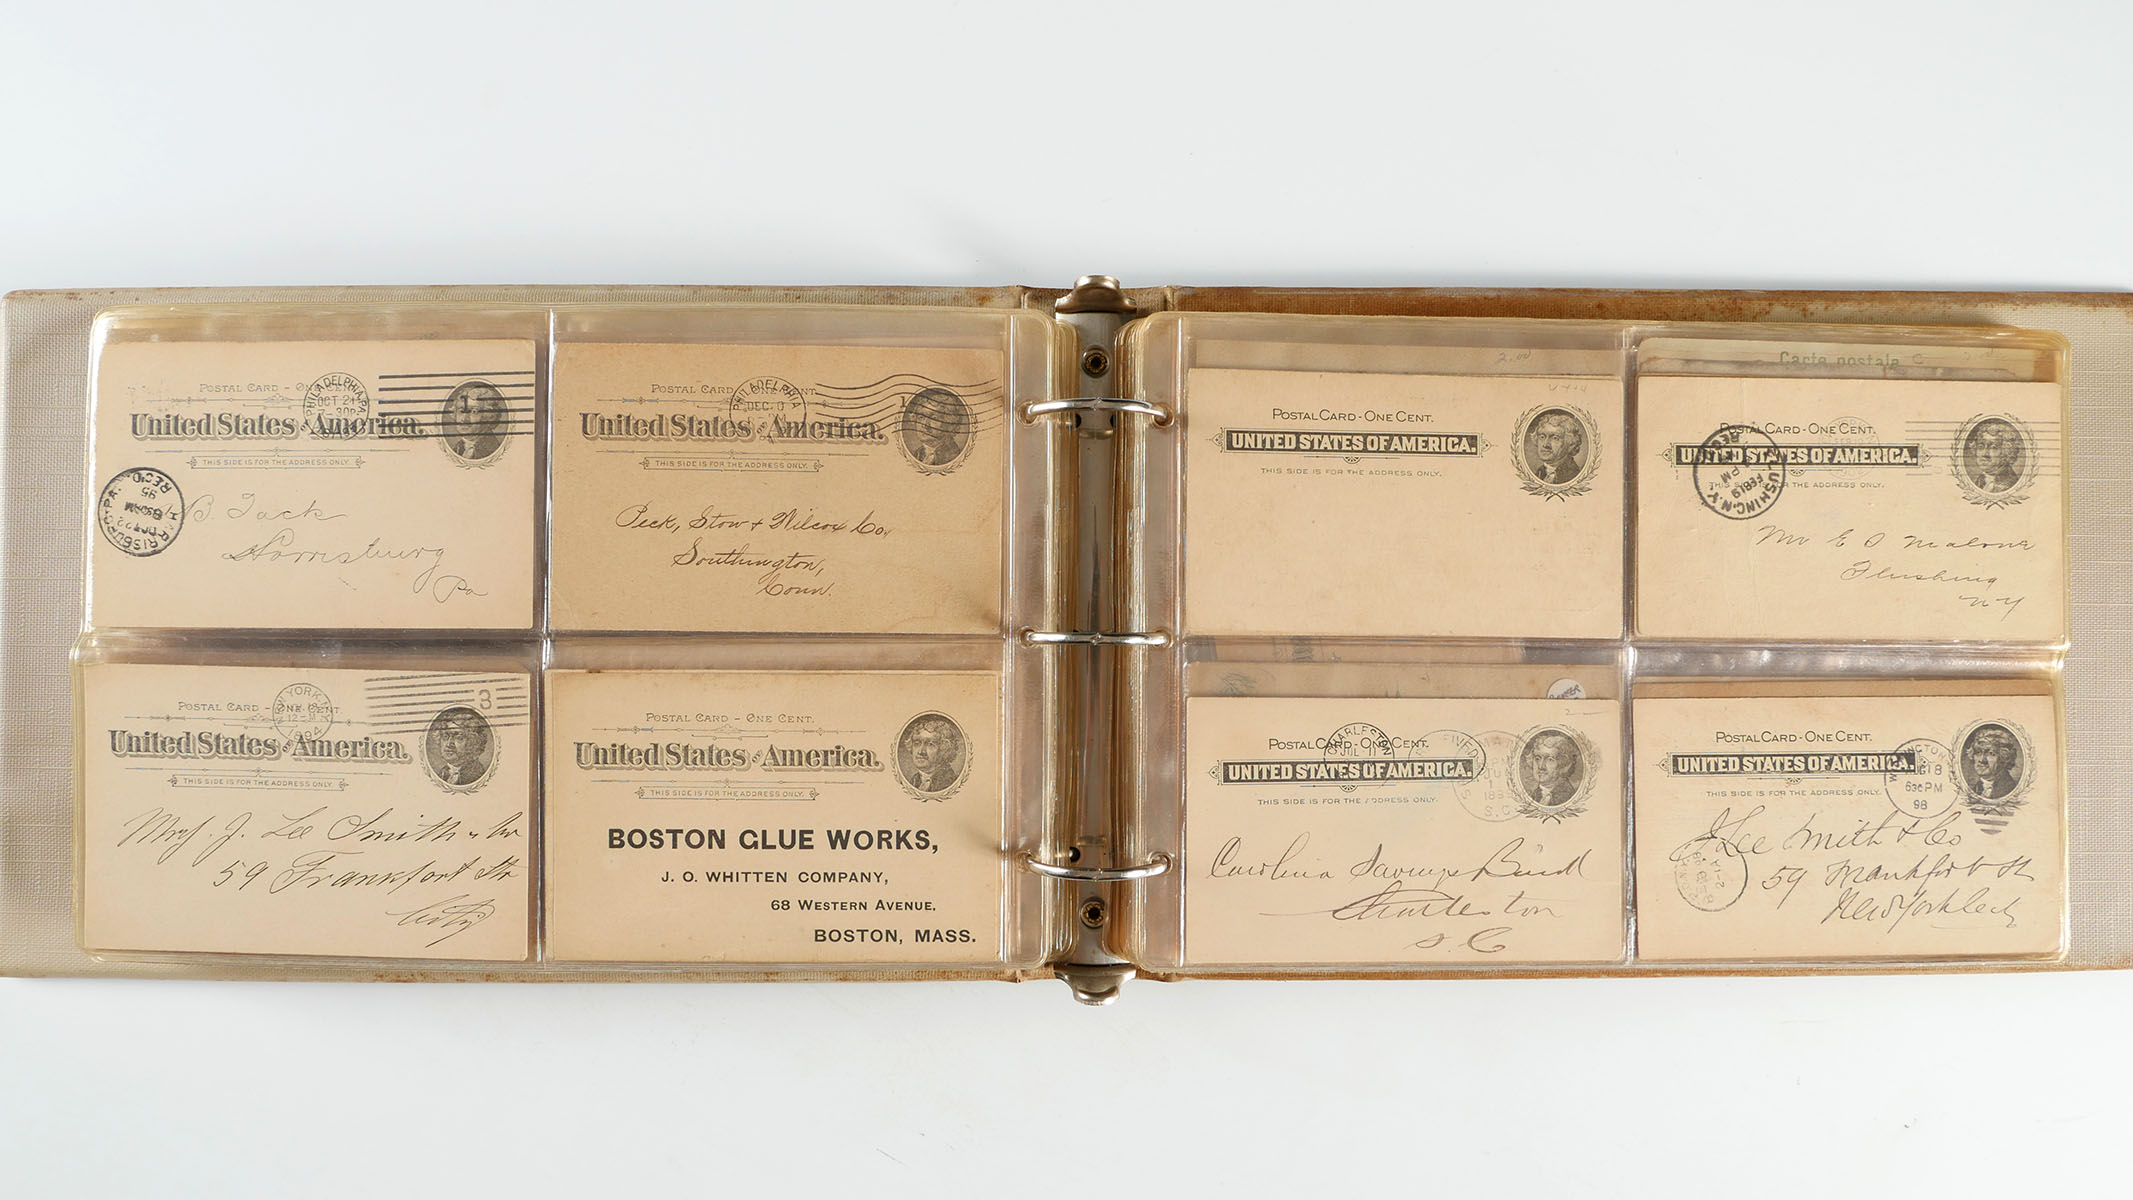 POSTAL CARD - ONE CENT.
United States of America.
THIS SIDE IS FOR THE ADDRESS ONLY.
PHILADELPHIA, PA.
OCT 21
7-30P
1
HARRISBURG, PA.
OCT 22
95
REC'D
B. Jack
Harrisburg
Pa
POSTAL CARD - ONE CENT.
United States of America.
THIS SIDE IS FOR THE ADDRESS ONLY.
PHILADELPHIA
DEC.
1
Peck, Stow & Wilcox Co,
Southington,
Conn.
POSTAL CARD - ONE CENT.
United States of America.
THIS SIDE IS FOR THE ADDRESS ONLY.
NEW YORK, N.Y.
12-M
1894
3
J. Lee Smith & Co
59 Frankfort Str
City
POSTAL CARD - ONE CENT.
United States of America.
THIS SIDE IS FOR THE ADDRESS ONLY.
BOSTON GLUE WORKS,
J. O. WHITTEN COMPANY,
68 WESTERN AVENUE,
BOSTON, MASS.
2.00
POSTAL CARD - ONE CENT.
UNITED STATES OF AMERICA.
THIS SIDE IS FOR THE ADDRESS ONLY.
Carte postale
POSTAL CARD - ONE CENT.
UNITED STATES OF AMERICA.
THIS SIDE IS FOR THE ADDRESS ONLY.
FLUSHING, N.Y.
FEB 19
PM
REC'D
Mr E D Malone
Flushing
N Y
POSTAL CARD - ONE CENT.
UNITED STATES OF AMERICA.
THIS SIDE IS FOR THE ADDRESS ONLY.
CHARLESTON
JUL 11
RECEIVED
S.C.
Carolina Savings Bank
Charleston
S. C
POSTAL CARD - ONE CENT.
UNITED STATES OF AMERICA.
THIS SIDE IS FOR THE ADDRESS ONLY.
630PM
98
J Lee Smith & Co
59 Frankfort St
New York City